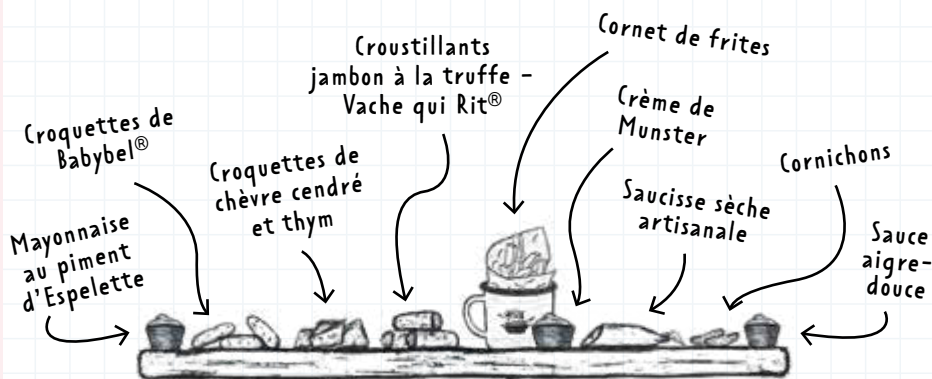 Mayonnaise
au piment
d'Espelette
Croquettes de
Babybel®
Croquettes de
chèvre cendré
et thym
Croustillants
jambon à la truffe –
Vache qui Rit®
Cornet de frites
Crème de
Munster
Saucisse sèche
artisanale
Cornichons
Sauce
aigre-
douce